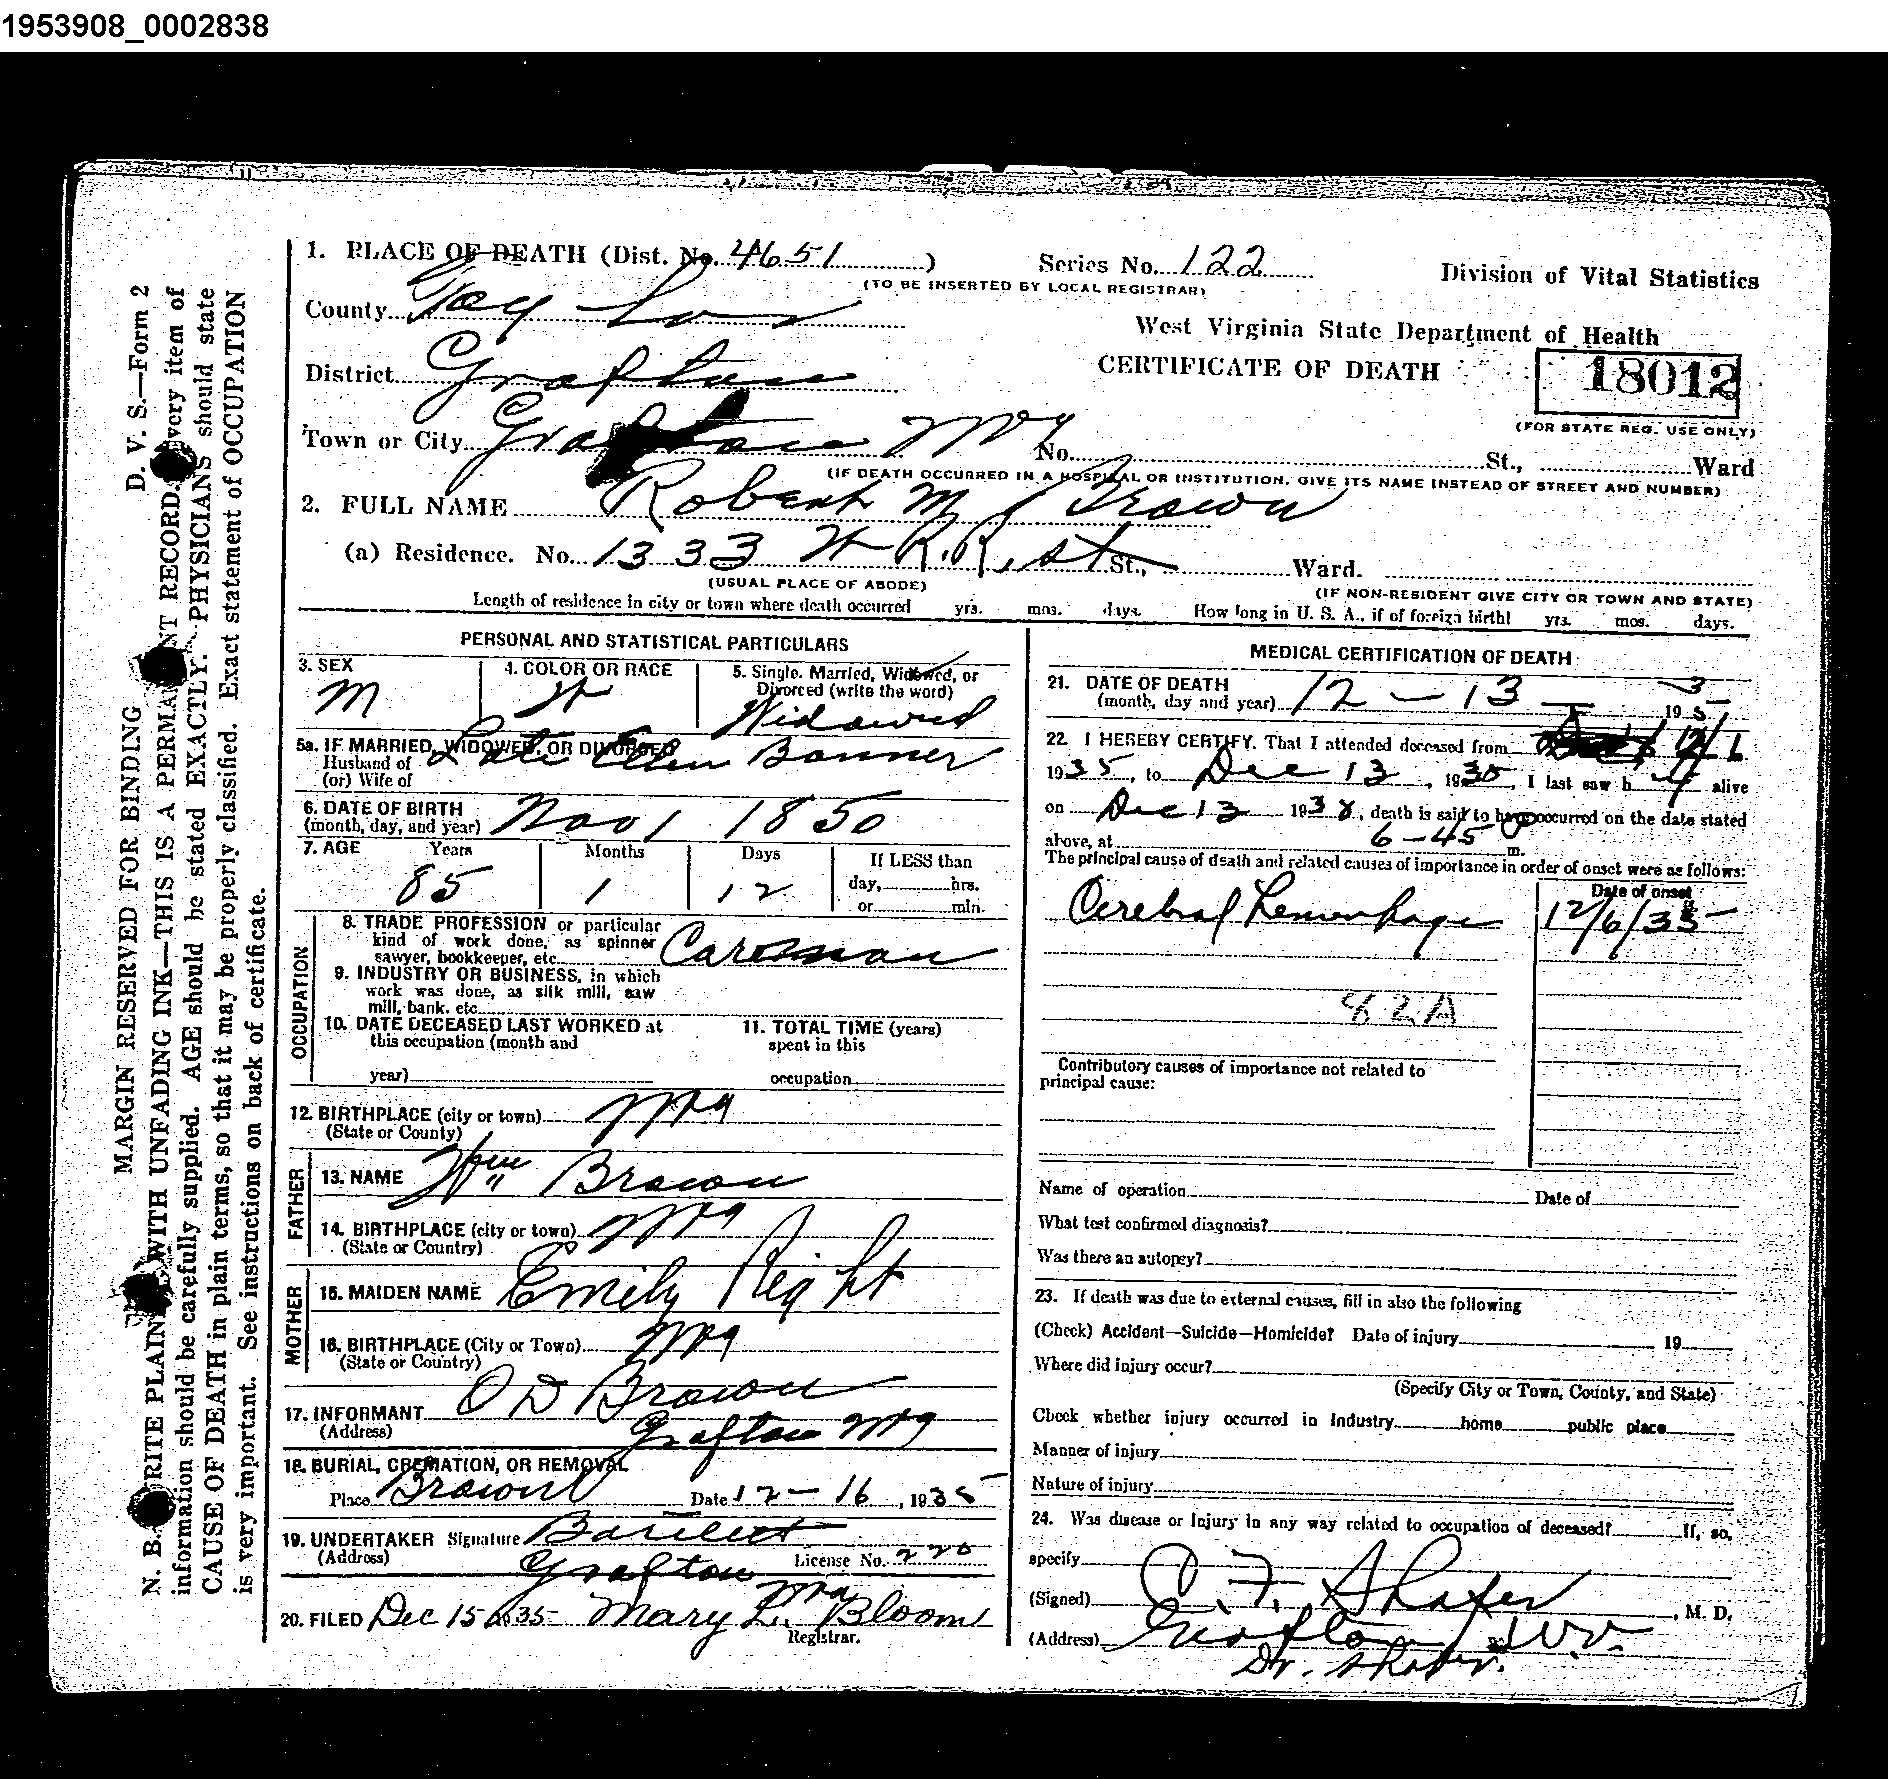 1953908_0002838
1. PLACE OF DEATH (Dist. No. 4651)
Series No. 122
(TO BE INSERTED BY LOCAL REGISTRAR)
Division of Vital Statistics
County Taylor
West Virginia State Department of Health
District Grafton
CERTIFICATE OF DEATH
18012
(FOR STATE REG. USE ONLY)
Town or City Grafton WVa No. St., Ward
(IF DEATH OCCURRED IN A HOSPITAL OR INSTITUTION, GIVE ITS NAME INSTEAD OF STREET AND NUMBER)
2. FULL NAME Robert M Brown
(a) Residence. No. 1333 W R.R. st St., Ward.
(USUAL PLACE OF ABODE)
(IF NON-RESIDENT GIVE CITY OR TOWN AND STATE)
Length of residence in city or town where death occurred yrs. mos. days. How long in U. S. A., if of foreign birth? yrs. mos. days.
PERSONAL AND STATISTICAL PARTICULARS
3. SEX
M
4. COLOR OR RACE
W
5. Single, Married, Widowed, or
Divorced (write the word)
Widowed
5a. IF MARRIED, WIDOWED, OR DIVORCED
Husband of
(or) Wife of
Late Ellen Bonner
6. DATE OF BIRTH
(month, day, and year) Nov 1 1850
7. AGE Years Months Days If LESS than
85 1 12 day, hrs.
or min.
OCCUPATION
8. TRADE PROFESSION or particular
kind of work done, as spinner
sawyer, bookkeeper, etc.
9. INDUSTRY OR BUSINESS, in which
work was done, as silk mill, saw
mill, bank, etc.
10. DATE DECEASED LAST WORKED at
this occupation (month and
year)
11. TOTAL TIME (years)
spent in this
occupation
12. BIRTHPLACE (city or town) WVa
(State or County)
FATHER
13. NAME Wm Brown
14. BIRTHPLACE (city or town) WVa
(State or Country)
MOTHER
15. MAIDEN NAME Emily Right
16. BIRTHPLACE (City or Town) WVa
(State or Country)
17. INFORMANT O D Brown
(Address) Grafton WVa
18. BURIAL, CREMATION, OR REMOVAL
Place Date 12-16, 1935
19. UNDERTAKER Signature Bartlett
(Address) Grafton WVa License No. 220
20. FILED Dec 15 1935 Mary L. Bloom
Registrar.
MEDICAL CERTIFICATION OF DEATH
21. DATE OF DEATH
(month, day and year) 12 - 13 - 1935
22. I HEREBY CERTIFY, That I attended deceased from
1935, to Dec 13, 1935, I last saw h alive
on Dec 13 193, death is said to have occurred on the date stated
above, at 6-45 m.
The principal cause of death and related causes of importance in order of onset were as follows:
Date of onset
Cerebral Hemorrhage 12/6/35
82A
Contributory causes of importance not related to
principal cause:
Name of operation Date of
What test confirmed diagnosis?
Was there an autopsy?
23. If death was due to external causes, fill in also the following
(Check) Accident—Suicide—Homicide? Date of injury 19
Where did injury occur?
(Specify City or Town, County, and State)
Check whether injury occurred in Industry home public place
Manner of injury
Nature of injury
24. Was disease or Injury in any way related to occupation of deceased? If, so,
specify
(Signed) C. F. Shafer, M. D.
(Address) Grafton W.V.
Dr. Shafer.
D. V. S.—Form 2
MARGIN RESERVED FOR BINDING
N. B. WRITE PLAINLY WITH UNFADING INK—THIS IS A PERMANENT RECORD. Every item of
information should be carefully supplied. AGE should be stated EXACTLY. PHYSICIANS should state
CAUSE OF DEATH in plain terms, so that it may be properly classified. Exact statement of OCCUPATION
is very important. See instructions on back of certificate.